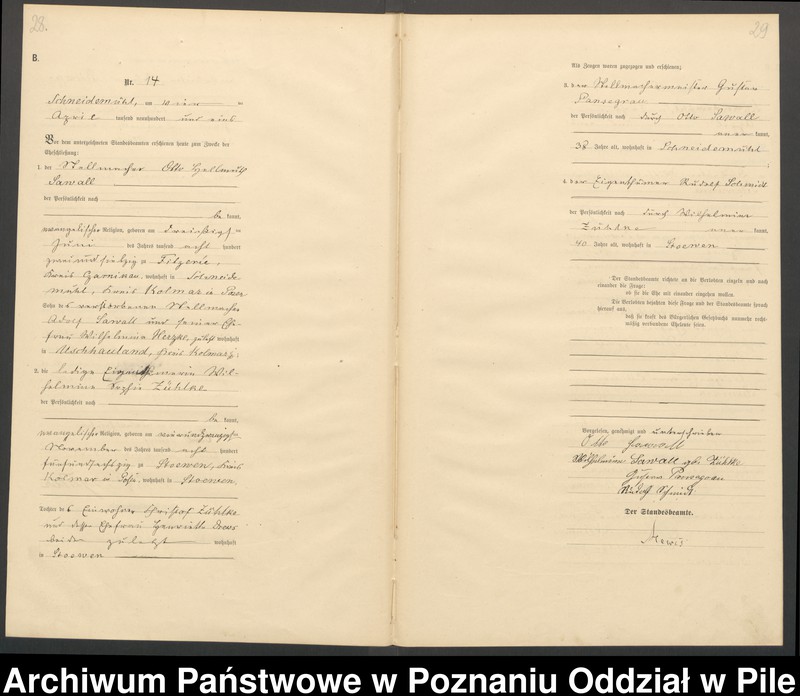 28.
B.
Nr. 14
Schneidemühl, am
April tausend neunhundert und eins
Vor dem unterzeichneten Standesbeamten erschienen heute zum Zwecke der
Eheschließung:
1. der Stellmacher Otto Hellmuth
Sawall
der Persönlichkeit nach
be kannt,
evangelischer Religion, geboren am dreissigst
Juni des Jahres tausend acht hundert
zweiundsiebzig zu Filzerie,
Kreis Czarnikau, wohnhaft in Schneide-
mühl, Kreis Kolmar in Posen
Sohn des verstorbenen Stellmachers
Adolf Sawall und seiner Ehe-
frau Wilhelmina zuletzt wohnhaft
in Uschhauland, Kreis Kolmar
2. die ledige Wil-
helmine Sophie Zühlke
der Persönlichkeit nach
be kannt,
evangelischer Religion, geboren am neunundzwanzigst
November des Jahres tausend acht hundert
fünfundsechzig zu Stoewen, Kreis
Kolmar in Posen, wohnhaft in Stoewen,
Tochter des Einwohner Christof Zühlke
und dessen Ehefrau Henriette Drews
beide zuletzt wohnhaft
in Stoewen
29
Als Zeugen waren zugezogen und erschienen:
3. der Stellmachermeister Gustav
Pansegrau
der Persönlichkeit nach durch Otto Sawall
aner kannt,
38 Jahre alt, wohnhaft in Schneidemühl
4. der Eigenthümer Rudolf Schmidt
der Persönlichkeit nach durch Wilhelmine
Zühlke aner kannt,
40 Jahre alt, wohnhaft in Stoewen
Der Standesbeamte richtete an die Verlobten einzeln und nach
einander die Frage:
ob sie die Ehe mit einander eingehen wollen.
Die Verlobten bejahten diese Frage und der Standesbeamte sprach
hierauf aus,
daß sie kraft des Bürgerlichen Gesetzbuchs nunmehr recht-
mäßig verbundene Eheleute seien.
Vorgelesen, genehmigt und unterschrieben
Otto Sawall
Wilhelmine Sawall geb. Zühlke
Gustav Pansegrau
Rudolf Schmidt
Der Standesbeamte.
Archiwum Państwowe w Poznaniu Oddział w Pile